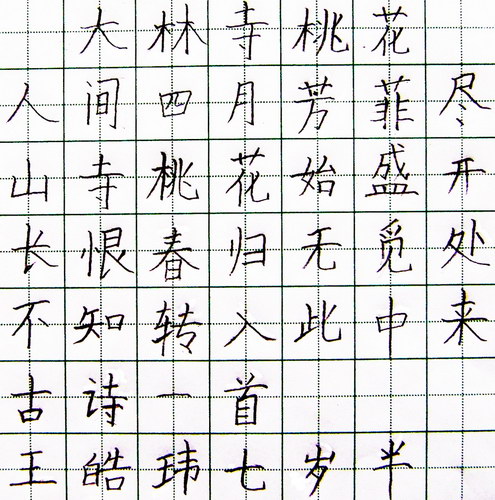 大林寺桃花
人间四月芳菲尽
山寺桃花始盛开
长恨春归无觅处
不知转入此中来
古诗一首
王皓玮七岁半